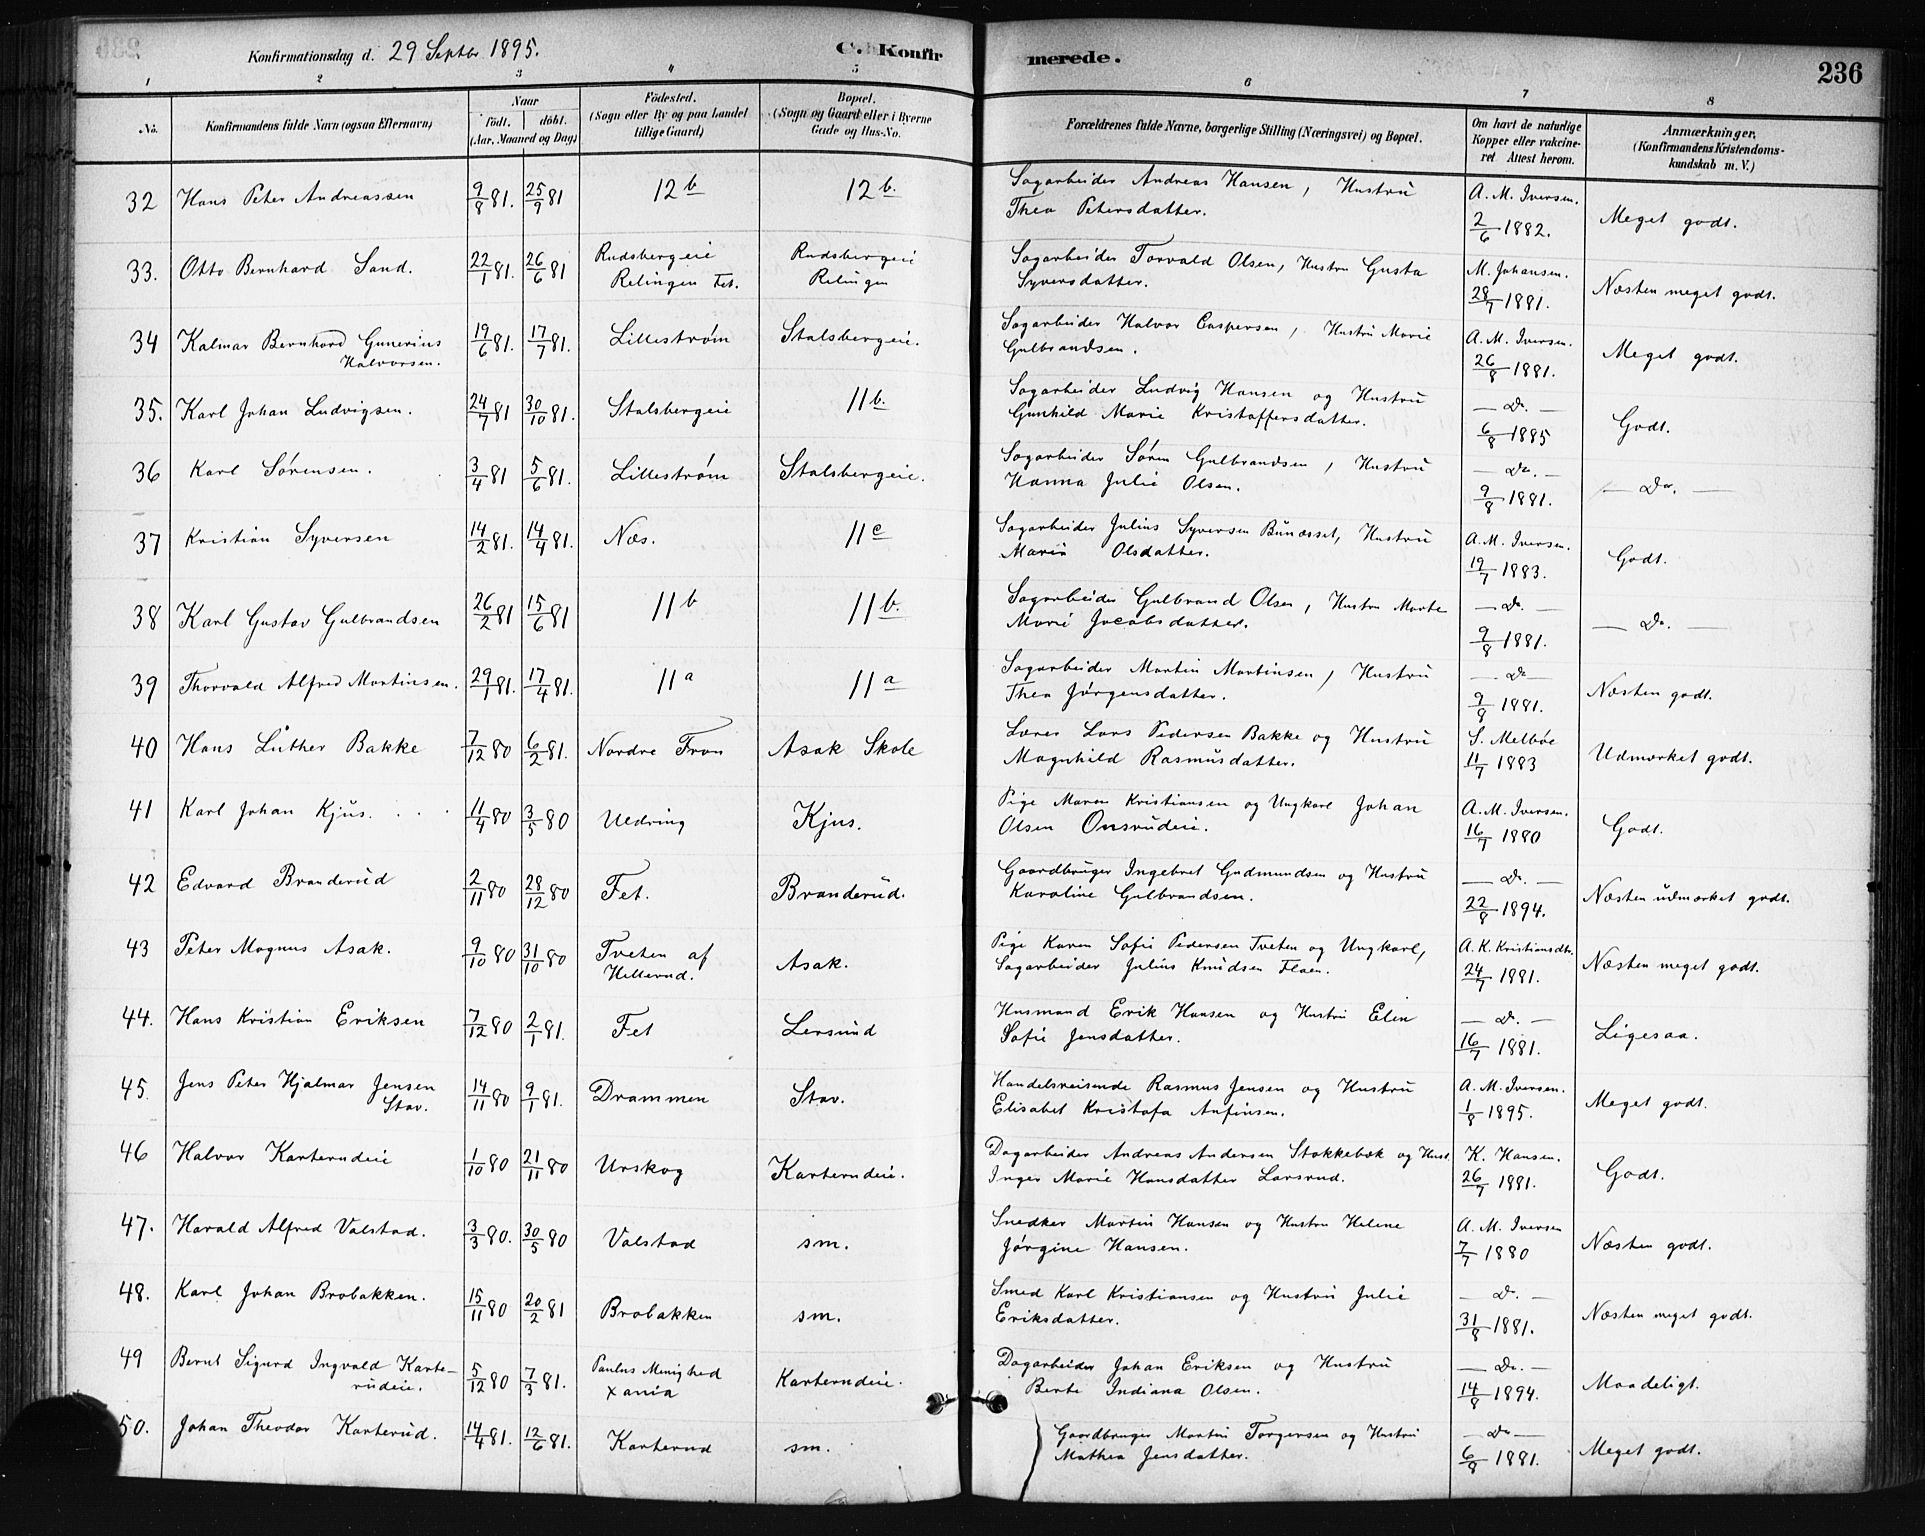 Konfirmationsdag d. 29 Septbr 1895.
C. Konfirmerede.
236
1 2 3 4 5 6 7 8
No.
Konfirmandens fulde Navn (ogsaa Efternavn)
Naar
født. døbt.
(Aar, Maaned og Dag)
Fødested.
(Sogn eller By og paa Landet
tillige Gaard)
Bopæl.
(Sogn og Gaard eller i Byerne
Gade og Hus-No.
Forældrenes fulde Navne, borgerlige Stilling (Næringsvei) og Bopæl.
Om havt de naturlige
Kopper eller vakcine-
ret Attest herom.
Anmærkninger,
(Konfirmandens Kristendoms-
kundskab m. V.)
32 Hans Peter Andreassen 9/8 81. 25/9 81 12 b 12 b. Sagarbeider Andreas Hansen, Hustru A. M. Iversen.
Thea Petersdatter. 2/6 1882. Meget godt.
33. Otto Bernhard Sand. 22/1 81. 26/6 81 Rudsbergeie Rudsbergeie Sagarbeider Torvald Olsen, Hustru Gusta M. Johansen.
Relingen Fet. Relingen Syversdatter. 28/7 1881. Næsten meget godt.
34 Kalmar Bernhard Gunerius 19/6 81. 17/7 81. Lillestrøm Stalsbergeie. Sagarbeider Halvor Caspersen, Hustru Marie A. M. Iversen.
Halvorsen. Gulbrandsen. 26/8 1881. Meget godt.
35. Karl Johan Ludvigsen. 24/7 81 30/10 81. Stalsbergeie 11 b. Sagarbeider Ludvig Hansen og Hustru — Do. —
Gunhild Marie Kristoffersdatter. 6/8 1885 Godt.
36 Karl Sørensen. 3/4 81 5/6 81. Lillestrøm Stalsbergeie. Sagarbeider Søren Gulbrandsen, Hustru — Do. —
Hanna Julie Olsen. 9/8 1881. — Do. —
37 Kristian Syversen 14/2 81. 14/4 81. Næs. 11 c Sagarbeider Julius Syversen Bunæsset, Hustru A. M. Iversen.
Marie Olsdatter. 19/7 1883. Godt.
38 Karl Gustav Gulbrandsen 26/2 81 15/6 81 11 b 11 b. Sagarbeider Gulbrand Olsen, Hustru Marte — Do. —
Marie Jacobsdatter. 9/8 1881. — Do. —
39 Thorvald Alfred Martinsen. 29/1 81. 17/4 81. 11 a 11 a Sagarbeider Martin Martinsen, Hustru — Do —
Thea Jørgensdatter. 9/8 1881. Næsten godt.
40 Hans Luther Bakke 7/12 80 6/2 81. Nordre Fron Asak Skole Lærer Lars Pedersen Bakke og Hustru S. Melbøe
Magnhild Rasmusdatter. 11/7 1883 Udmærket godt.
41 Karl Johan Kjus. 11/4 80 3/5 80 Uldring Kjus. Pige Maren Kristiansen og Ungkarl Johan A. M. Iversen.
Olsen Onsrudeie. 16/7 1880 Godt.
42 Edvard Branderud 2/11 80 28/12 80 Fet. Branderud. Gaardbruger Ingebret Gudmundsen og Hustru — Do. —
Karoline Gulbrandsen. 22/8 1894. Næsten udmærket godt.
43 Peter Magnus Asak. 9/10 80 31/10 80 Tveten af Asak. Pige Karen Sofie Pedersen Tveten og Ungkarl, A. K. Kristiansdtr.
Hellerud. Sagarbeider Julius Knudsen Flaen. 24/7 1881. Næsten meget godt.
44. Hans Kristian Eriksen 7/12 80 2/1 81. Fet Lersund Husmand Erik Hansen og Hustru Elen — Do. —
Sofie Jensdatter. 16/7 1881. Ligesaa.
45. Jens Peter Hjalmar Jensen 14/11 80 9/1 81. Drammen Stav. Handelsreisende Rasmus Jensen og Hustru A. M. Iversen.
Stav. Elisabet Kristofa Anfinsen. 1/8 1895. Meget godt.
46 Halvor Karterudeie 1/10 80 21/11 80 Urskog Karterudeie. Dagarbeider Andreas Andersen Stokkebæk og Hust. K. Hansen.
Inger Marie Hansdatter Larsrud. 26/7 1881. Godt.
47. Harald Alfred Valstad. 3/3 80. 30/5 80 Valstad sm. Snedker Martin Hansen og Hustru Helene A. M. Iversen
Jørgine Hansen. 7/7 1880 Næsten godt.
48. Karl Johan Brobakken. 15/11 80 20/2 81 Brobakken sm. Smed Karl Kristiansen og Hustru Julie — Do. —
Eriksdatter. 31/8 1881. Næsten meget godt.
49 Bernt Sigurd Ingvald Karte- 5/12 80 7/3 81. Paulus Menighed Karterudeie. Dagarbeider Johan Eriksen og Hustru — Do. —
rudeie. Xania Berte Indiana Olsen. 14/8 1894. Maadeligt.
50. Johan Theodor Karterud. 14/4 81. 12/6 81. Karterud sm. Gaardbruger Martin Torgersen og Hustru — Do —
Mathea Jensdatter. 6/8 1881. Meget godt.